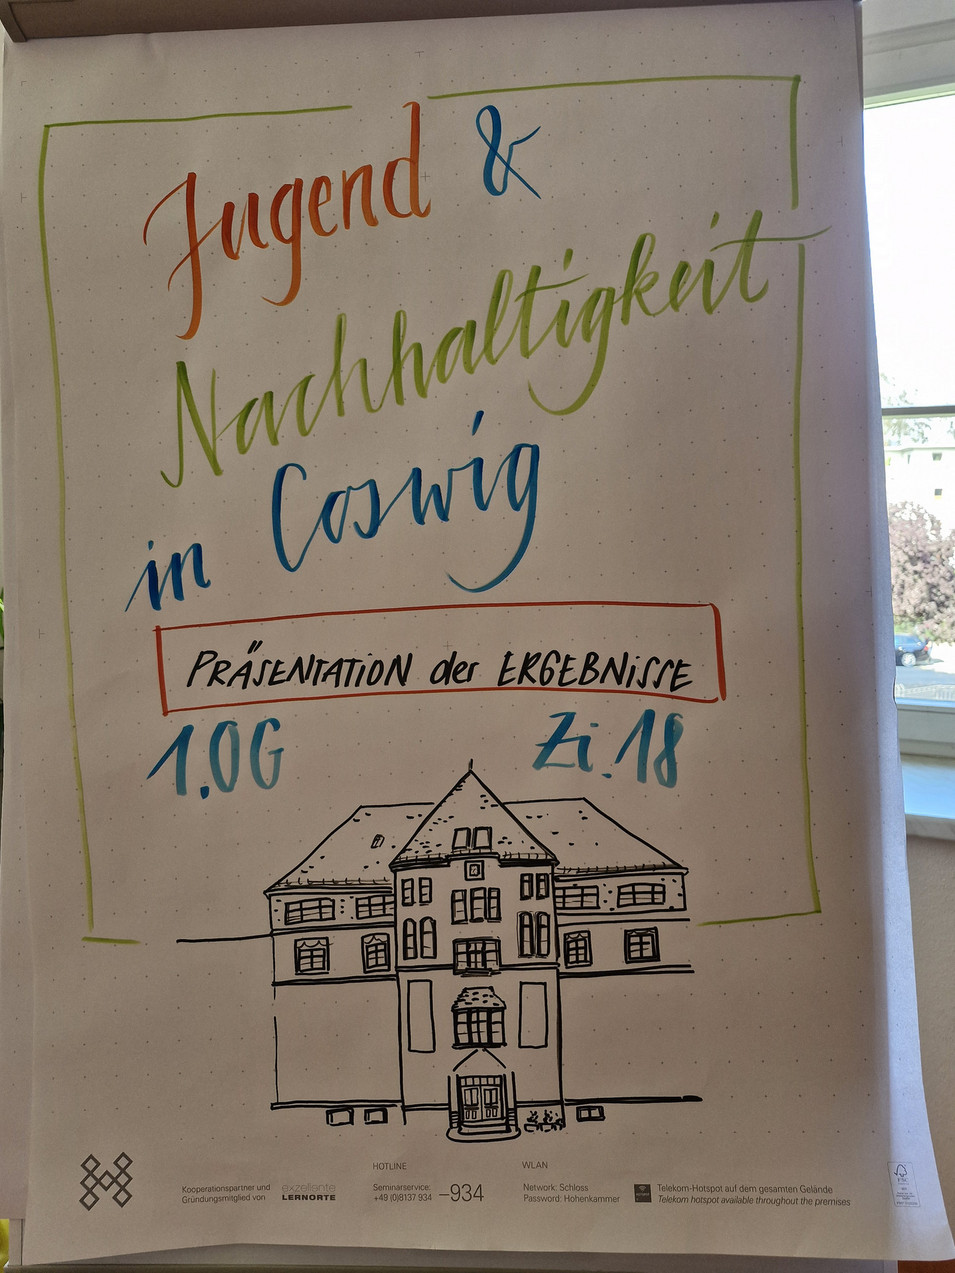 Jugend &
Nachhaltigkeit
in Coswig
PRÄSENTATION der ERGEBNISSE
1.OG Zi.18
HOTLINE
WLAN
Kooperationspartner und
Gründungsmitglied von
exzellente
LERNORTE
Seminarservice:
+49 (0)8137 934 –934
Network: Schloss
Password: Hohenkammer
Telekom-Hotspot auf dem gesamten Gelände
Telekom hotspot available throughout the premises
FSC